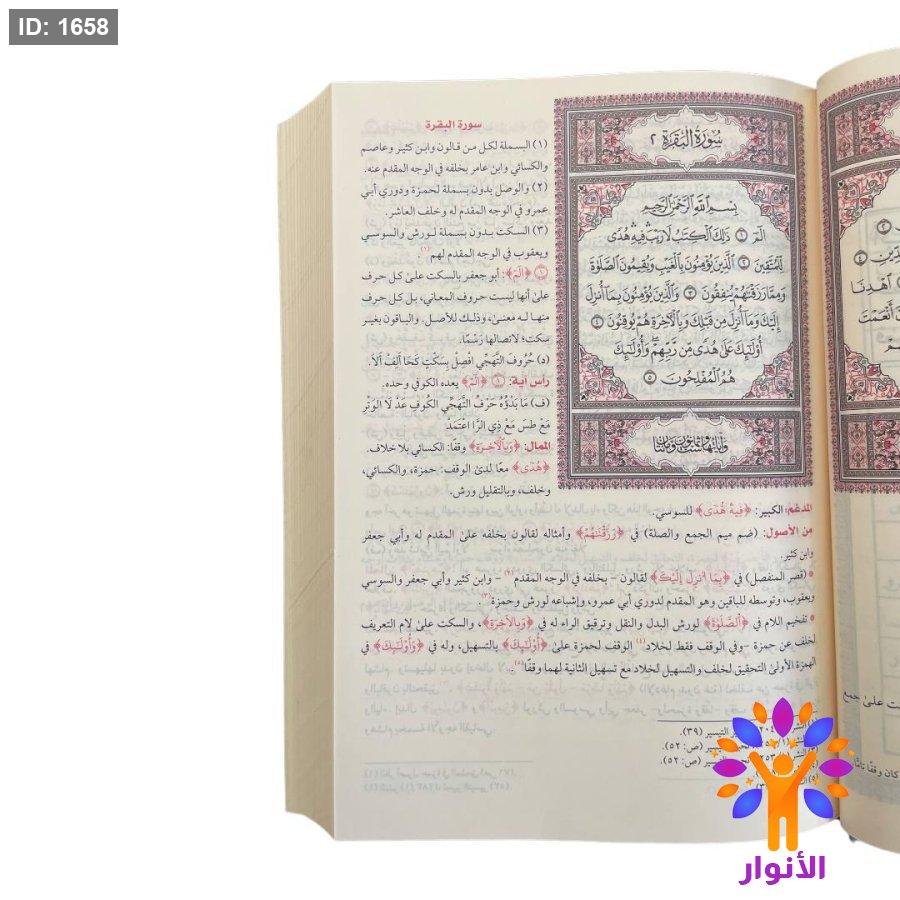 ID: 1658
سورة البقرة
(١) البسملة لكل من قالون وابن كثير وعاصم
والكسائي وابن عامر بخلفه في الوجه المقدم عنه.
(٢) والوصل بدون بسملة لحمزة ودوري أبي
عمرو في الوجه المقدم له وخلف العاشر.
(٣) السكت بدون بسملة لورش والسوسي
ويعقوب في الوجه المقدم لهم(١).
﴿الٓمٓ﴾ ١: أبو جعفر بالسكت علىٰ كل حرف
علىٰ أنها ليست حروف المعاني، بل كل حرف
منها له معنىٰ، وذلك للأصل. والباقون بغير
سكت؛ لاتصالها رَسْمًا.
(د) حُرُوفَ التَّهَجِّي افْصِلْ بِسَكْتٍ كَحَا أَلِفْ أَلَا.
رأس آية: ﴿الٓمٓ﴾ ١ يعده الكوفي وحده.
(ف) مَا بَدْؤُهُ حَرْفُ التَّهَجِّي الْكُوفِ عَدْ لَا الْوَتْرَ
مَعْ طسَ مَعْ ذِي الرَّا اعْتَمَدْ
الممال: ﴿وَبِالْآخِرَةِ﴾ وقفًا: الكسائي بلا خلاف.
﴿هُدًى﴾ معًا لدىٰ الوقف: حمزة، والكسائي،
وخلف، وبالتقليل ورش.
سُورَةُ البَقَرَةِ ٢
بِسْمِ اللَّهِ الرَّحْمَٰنِ الرَّحِيمِ
الٓمٓ ١ ذَٰلِكَ الْكِتَٰبُ لَا رَيْبَ فِيهِ هُدًى
لِّلْمُتَّقِينَ ٢ الَّذِينَ يُؤْمِنُونَ بِالْغَيْبِ وَيُقِيمُونَ الصَّلَوٰةَ
وَمِمَّا رَزَقْنَٰهُمْ يُنفِقُونَ ٣ وَالَّذِينَ يُؤْمِنُونَ بِمَا أُنزِلَ
إِلَيْكَ وَمَا أُنزِلَ مِن قَبْلِكَ وَبِالْآخِرَةِ هُمْ يُوقِنُونَ ٤
أُوْلَٰئِكَ عَلَىٰ هُدًى مِّن رَّبِّهِمْ وَأُوْلَٰئِكَ
هُمُ الْمُفْلِحُونَ ٥
المدغم: الكبير: ﴿فِيهِ هُدًى﴾ للسوسي.
من الأصول: (ضم ميم الجمع والصلة) في ﴿رَزَقْنَٰهُمْ﴾ وأمثاله لقالون بخلفه علىٰ المقدم له وأبي جعفر
وابن كثير.
* (قصر المنفصل) في ﴿بِمَا أُنزِلَ إِلَيْكَ﴾ لقالون - بخلفه في الوجه المقدم(٢) - وابن كثير وأبي جعفر والسوسي
ويعقوب، وتوسطه للباقين وهو المقدم لدوري أبي عمرو، وإشباعه لورش وحمزة(٣).
* تفخيم اللام في ﴿الصَّلَوٰةَ﴾ لورش البدل والنقل وترقيق الراء له في ﴿وَبِالْآخِرَةِ﴾، والسكت علىٰ لام التعريف
لخلف عن حمزة -وفي الوقف فقط لخلاد(٤) الوقف لحمزة علىٰ ﴿أُوْلَٰئِكَ﴾ بالتسهيل، وله في ﴿وَأُوْلَٰئِكَ﴾ في
الهمزة الأولىٰ التحقيق لخلف والتسهيل لخلاد مع تسهيل الثانية لهما وقفًا(٥).
التيسير (٣٩).
التيسير (ص: ٥٢).
التيسير (ص: ٥٢).
أَنْعَمْتَ
علىٰ جمع
كان وقفًا تامًّا
الأنوار